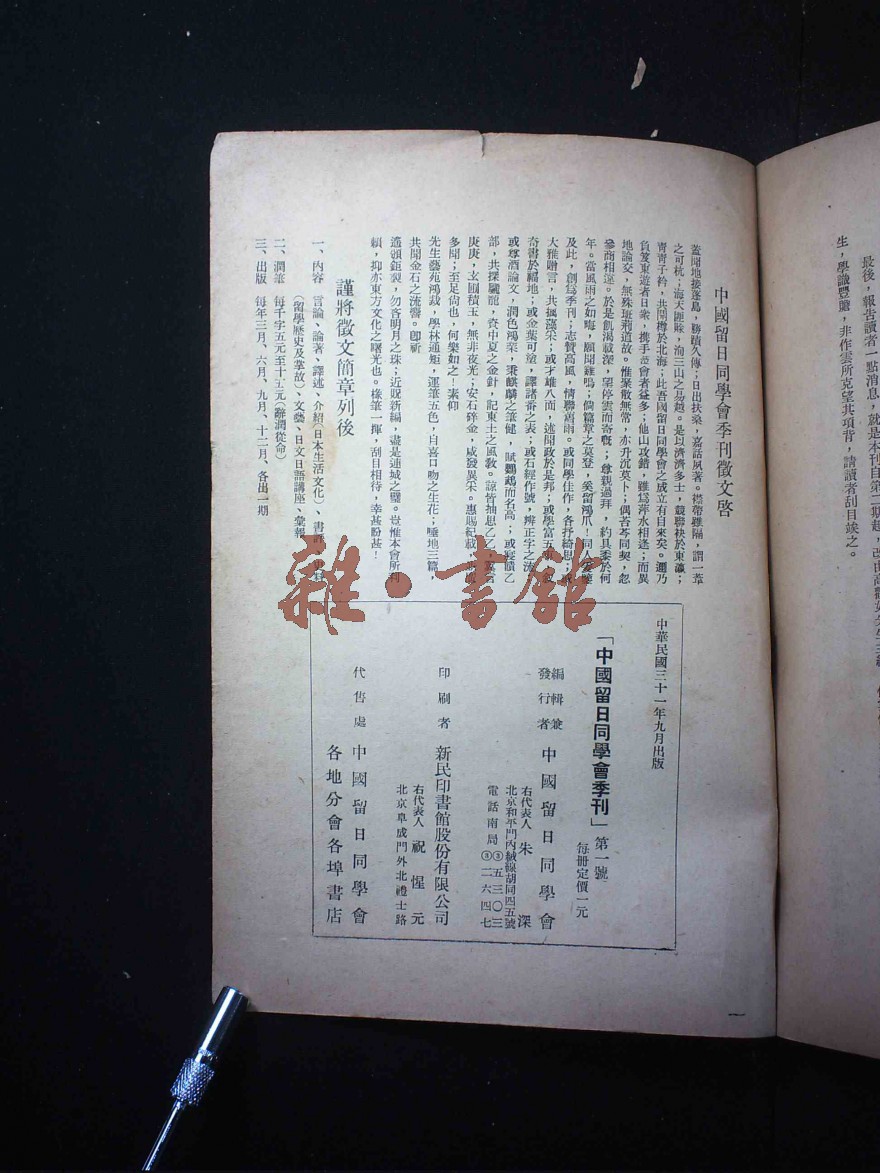 最後,報告讀者一點消息,就是本刊自第二期起,改由高觀如先生主編,
生,學識豐贍,非作雲所克望其項背,請讀者刮目竢之。
中國留日同學會季刊徵文啓
蓋聞地接蓬島,勝蹟久傳;日出扶桑,嘉話夙著。襟帶雖隔,謂一葦
之可杭;海天匪賒,洵三山之易越。是以濟濟多士,競聯袂於東瀛;
青青子衿,共開樽於北海,此吾國留日同學會之成立有自來矣。邇乃
負笈東遊者日衆,携手 會者益多;他山攻錯,雖爲萍水相逢;而異
地論交,無殊班荊道故。惟聚散無常,亦升沉莫卜;偶苔岑同契,忽
參商相違。於是飢渴載深,望停雲而寄慨;尊親過拜,約具黍於何
年。當風雨之如晦,願聞雞鳴;倘篇章之莫登,奚留鴻爪!同人
及此,創爲季刊;志贊高風,情聯舊雨。或同學佳作,各抒綺思;或
大雅贈言,共攄藻采;或才雄八面,述開政於是邦;或學富五車,
奇書於福地;或金葉可塗,譯諸番之表;或石經作號,辨正字之流
或尊酒論文,潤色鴻業,秉麒麟之筆健,賦鸚鵡而名高;或宴 乙
部,共探驪龍,賚中夏之金針,記東土之風敎。諒皆抽思乙乙,
庚庚,玄圃積玉,無非夜光;安石碎金,咸發異采。惠賜紀載,
多聞;至足尙也,何樂如之!素仰
先生藝苑鴻裁,學林通矩,運筆五色,自喜口吻之生花;唾地三篇,
共聞金石之流響。卽祈
遙頒鉅製,勿吝明月之珠;近貺新編,盡是連城之璧。豈惟本會所利
賴,抑亦東方文化之曙光也。椽筆一揮,刮目相待,幸甚盼甚!
謹將徵文簡章列後
一、內容 言論、論著、譯述、介紹(日本生活文化)、書評、史料
(留學歷史及掌故)、文藝、日文日語講座、彙報
二、潤筆 每千字五元至十五元(辭潤從命)
三、出版 每年三月、六月、九月、十二月、各出一期
中華民國三十一年九月出版
「中國留日同學會季刊」第一號
每冊定價一元
編輯兼發行者 中國留日同學會
右代表人 朱深
北京和平門內絨線胡同四五號
電話南局③五三〇三 ③二六四七
印刷者 新民印書館股份有限公司
右代表人 祝惺元
北京阜成門外北禮士路
代售處 中國留日同學會
各地分會各埠書店
雜·書館